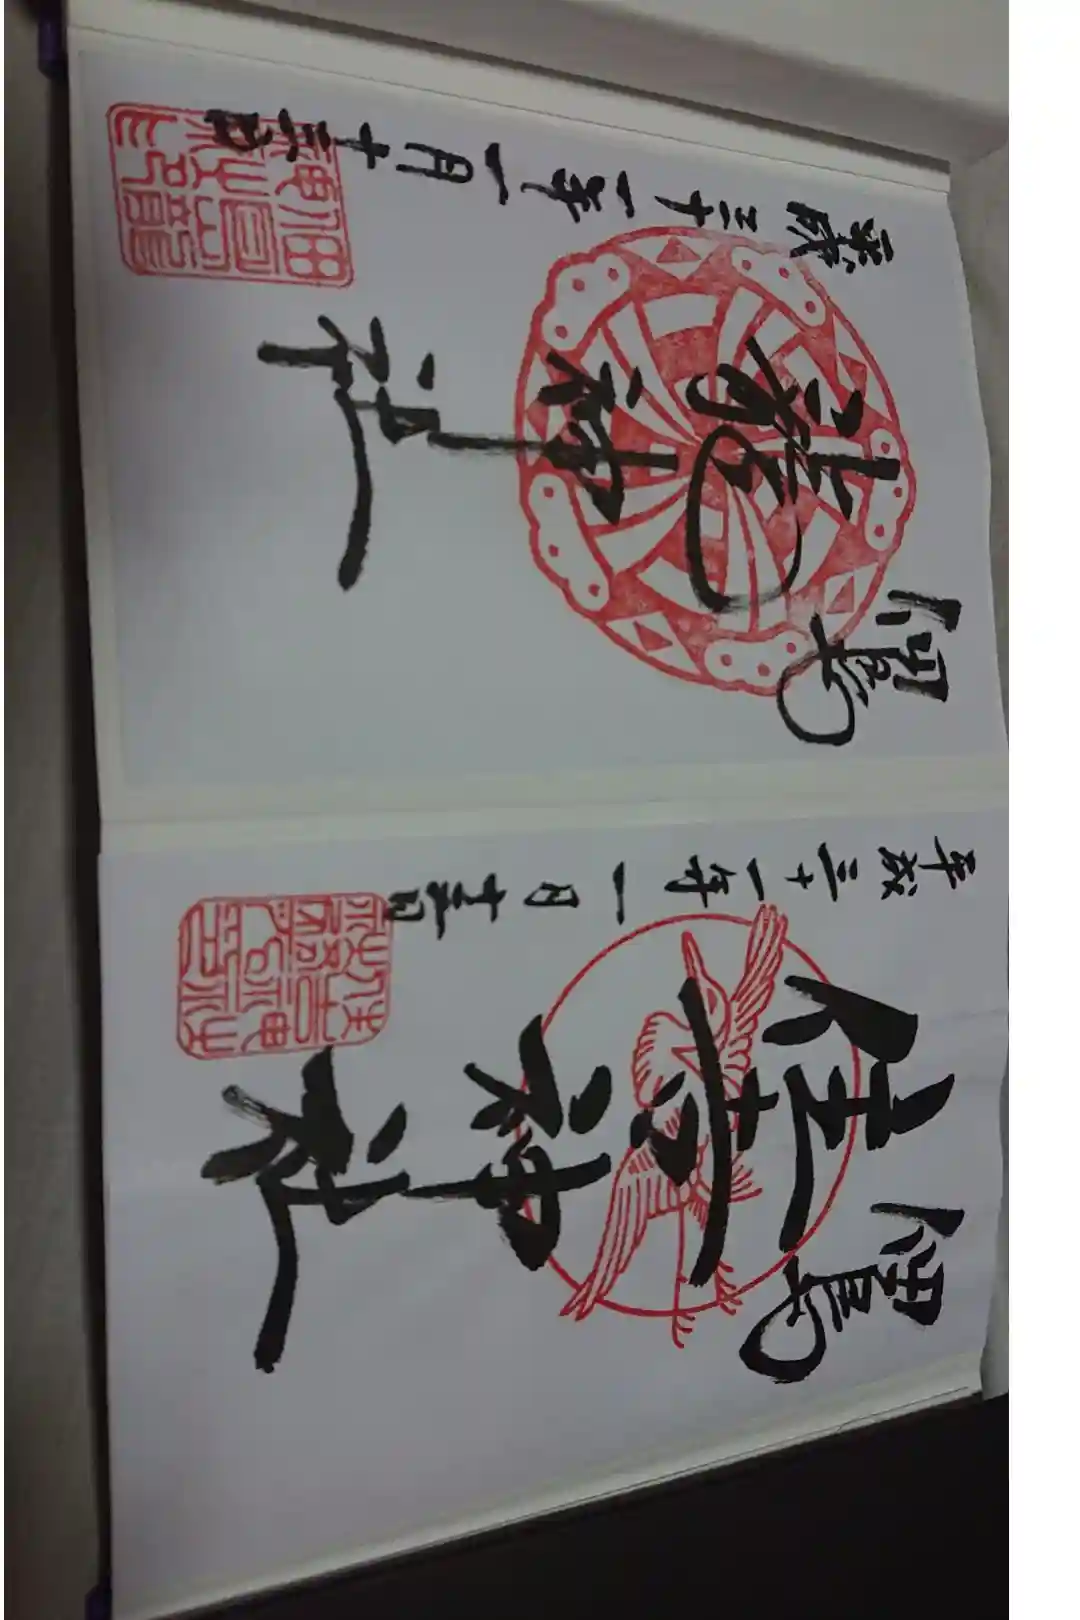 佃島
住吉神社
平成三十一年一月十三日
佃島
龍神社
平成三十一年一月十三日